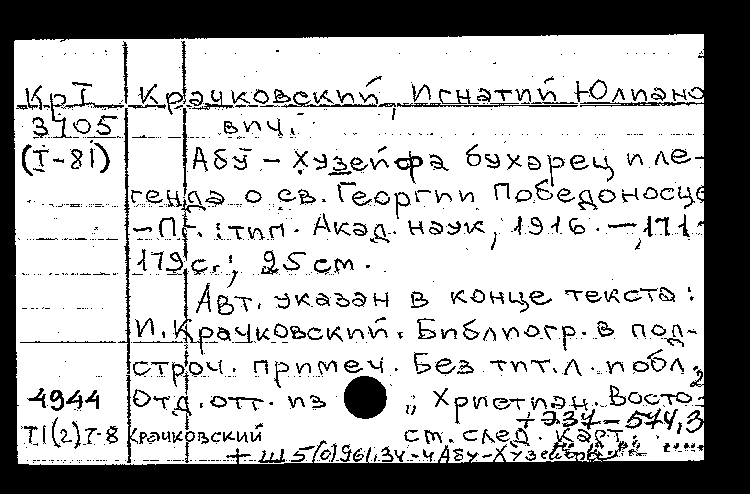 КрI Крачковский, Игнатий Юлиано
3705 вич.
(I-81) Абӯ-Х̣уз̱ейфа бухарец и ле-
генда о св. Георгии Победоносце
- Пг. : тип. Акад. наук, 1916. -, 171-
179 с.; 25 см.
Авт. указан в конце текста:
И. Крачковский. Библиогр. в под-
строч. примеч. Без тит. л. и обл.
4944 Отд. отт. из „Христиан. Восто-
+ 9.37 - 574,3
Т1(2)7-8 Крачковский см. след. карт.
+ Ш5(0)961.34-4 Абу-Хузейфа